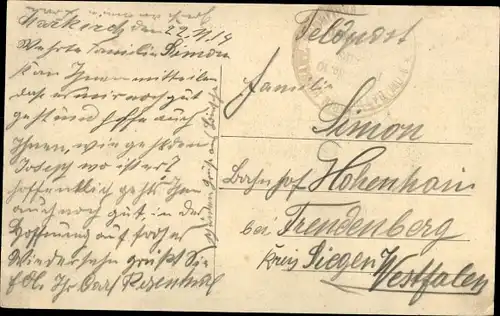 Markirch den 22.11.14
Wehrte Familie Simon
kan Ihnen mitteilen
das es mir noch gut
geht und hoffe auch
Ihnen, wie geht den
Joseph wo ist er?
hoffentlich gehts Ihm
auch noch gut, in der
Hoffnung auf frohes
Wiedersehn grüßt Sie
Ihr Carl Rosenthal
Gruß auf
Feldpost
Familie
Simon
Bahnhof Hohenhain
bei Freudenberg
Kreis Siegen
Westfalen